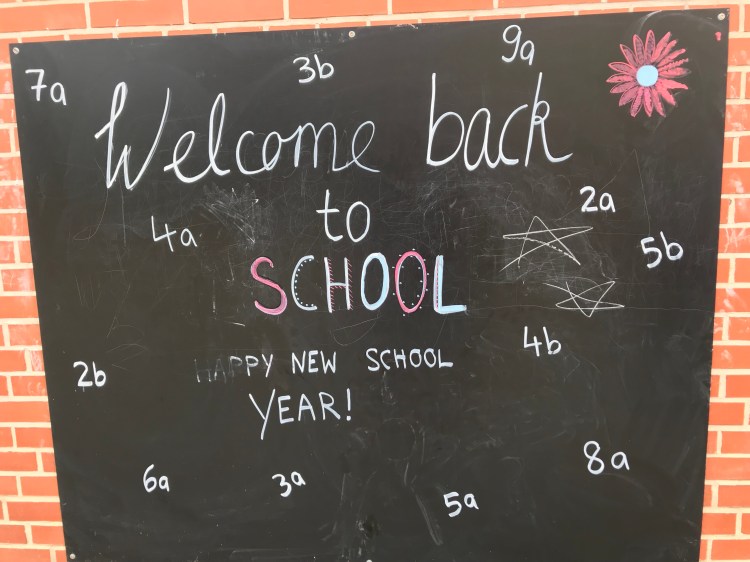 9a
3b
7a
Welcome back
to
2a
4a
5b
SCHOOL
4b
HAPPY NEW SCHOOL
2b
YEAR!
8a
6a
3a
5a